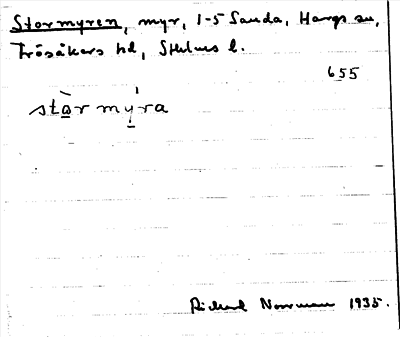 Stormyren, myr, 1-5 Sanda, Hargs sn,
Frösåkers hd, Sthlms l.
655
stòr mýra
Richard Norrman 1935.